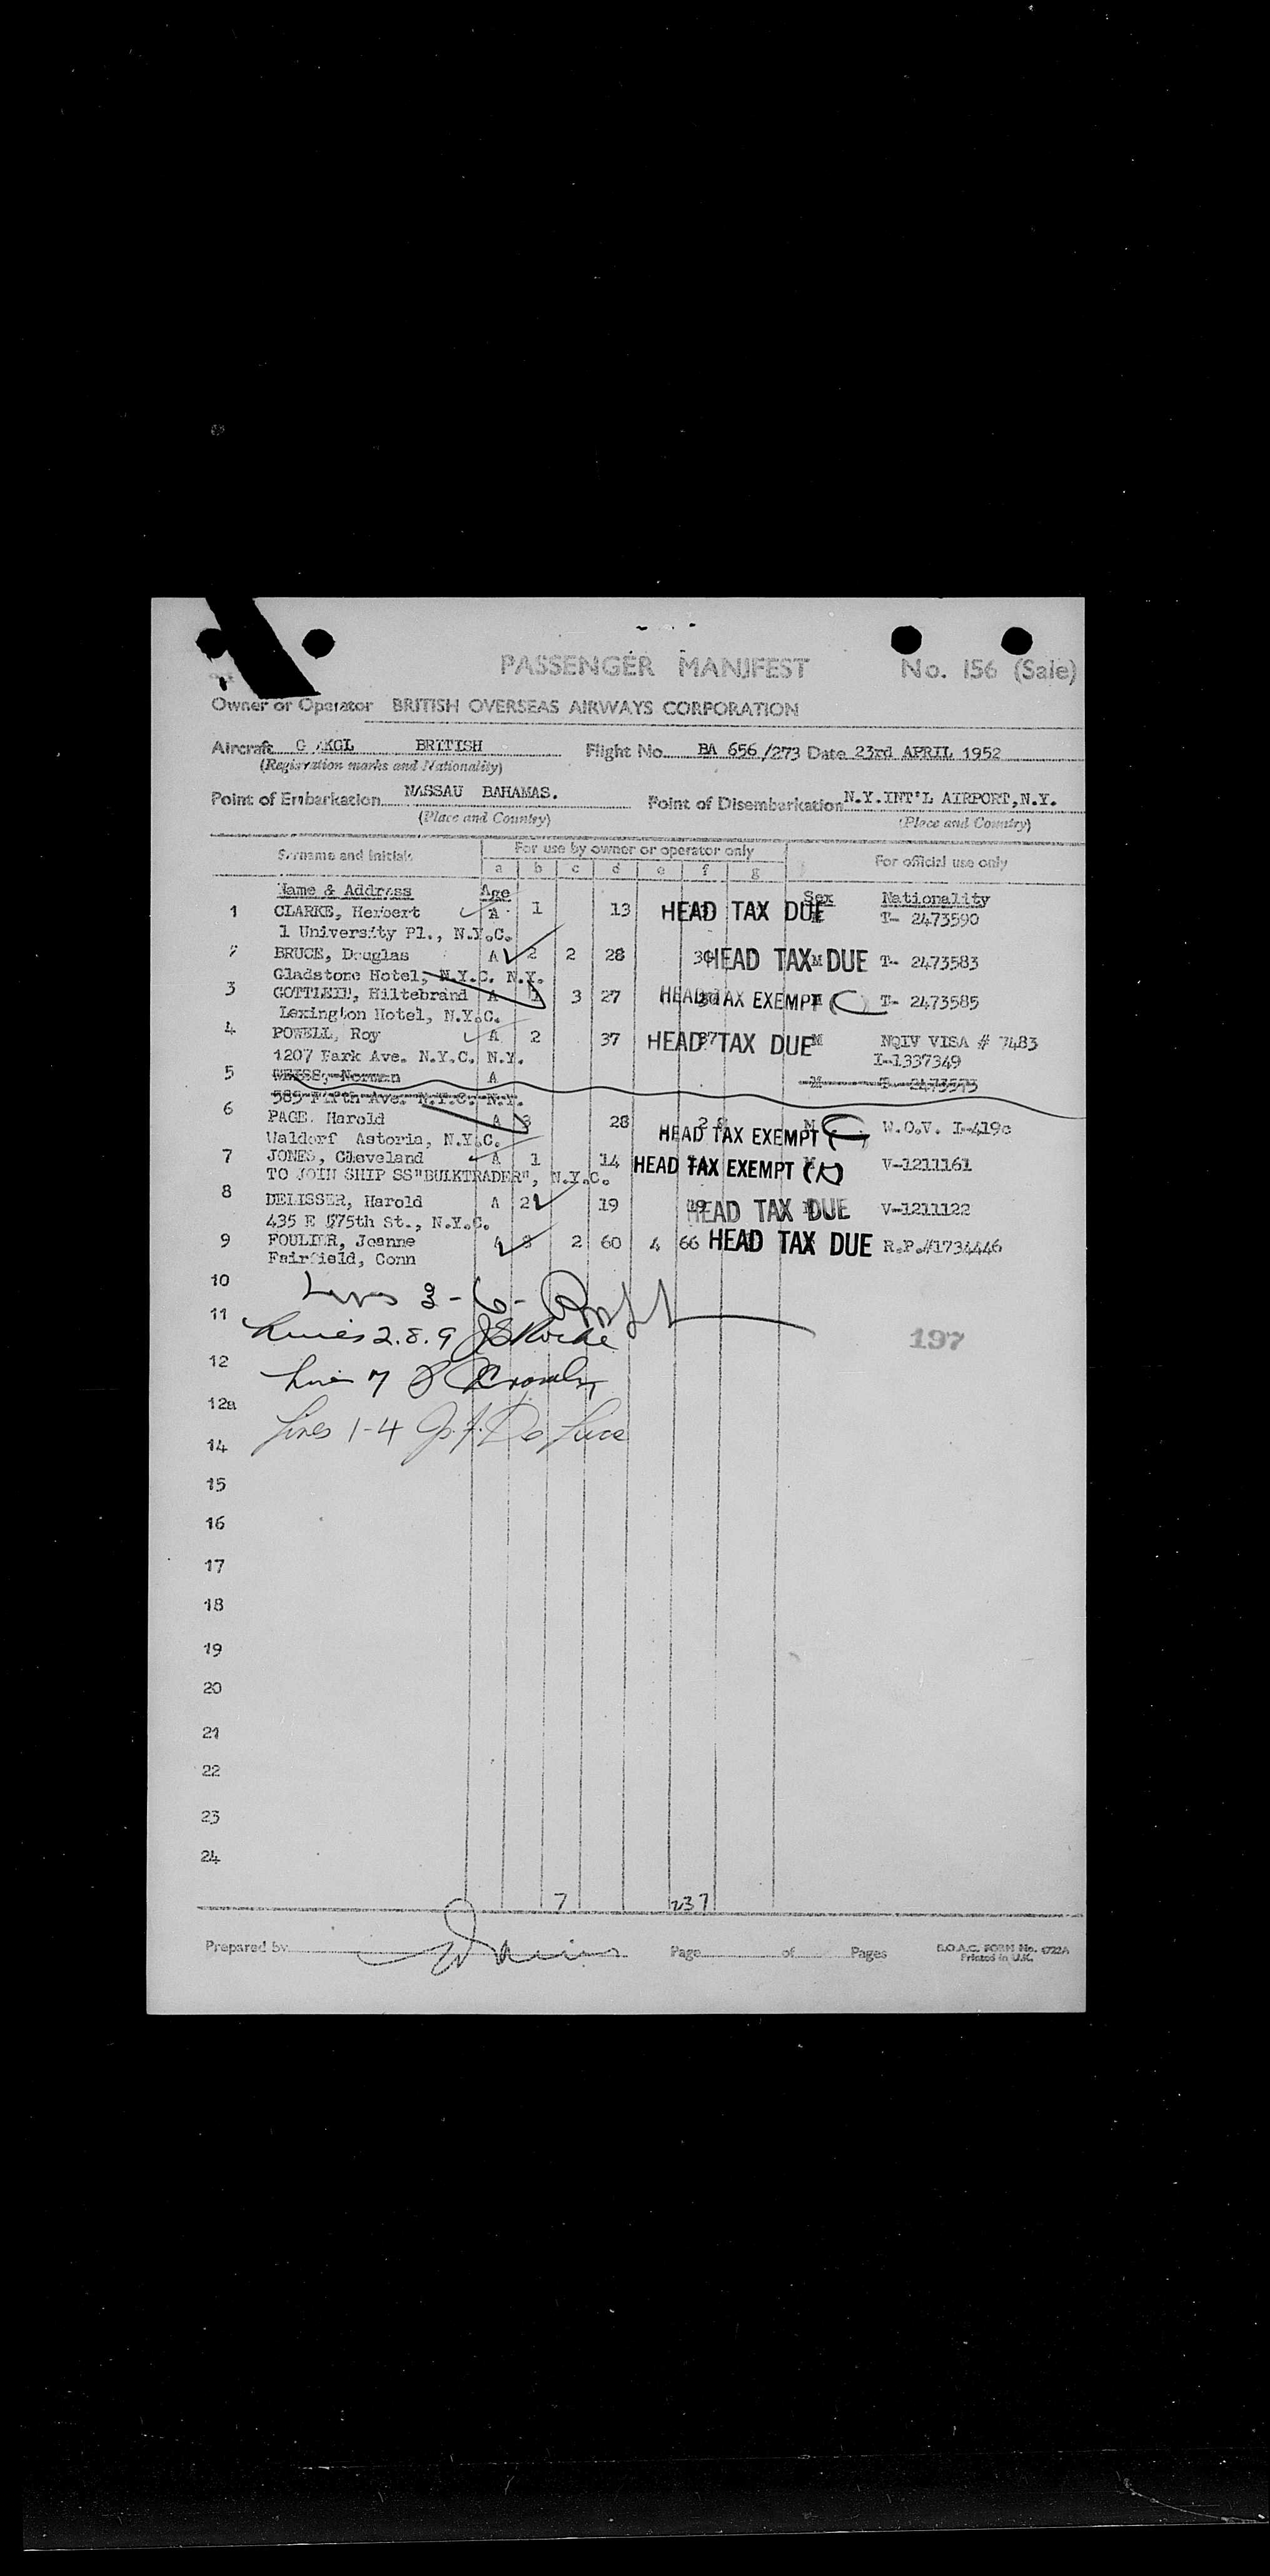 PASSENGER MANIFEST No. 156 (Sale)
Owner or Operator BRITISH OVERSEAS AIRWAYS CORPORATION
Aircraft G KGL BRITISH Flight No. BA 656/273 Date 23rd APRIL 1952
(Registration marks and Nationality)
Point of Embarkation NASSAU BAHAMAS. Point of Disembarkation N.Y.INT'L AIRPORT,N.Y.
(Place and Country) (Place and Country)
Surname and Initials For use by owner or operator only For official use only
a b c d e f g
Name & Address Age Sex Nationality
1 CLARKE, Herbert A 1 13 HEAD TAX DUE T- 2473590
1 University Pl., N.Y.C.
2 BRUCE, Douglas A 2 2 28 HEAD TAX DUE M T- 2473583
Gladstone Hotel, N.Y.C. N.Y.
3 GOTTLEIB, Hiltebrand A 1 3 27 HEAD TAX EXEMPT T- 2473585
Lexington Hotel, N.Y.C.
4 POWELL, Roy A 2 37 37 HEAD TAX DUE M NQIV VISA # 7483
1207 Park Ave. N.Y.C. N.Y. I-1337349
5 WEISS, Norman A M T- 2473573
585 Fifth Ave. N.Y.C. N.Y.
6 PAGE. Harold A 3 28 28 HEAD TAX EXEMPT M W.O.V. I-419c
Waldorf Astoria, N.Y.C.
7 JONES, Cleveland A 1 14 HEAD TAX EXEMPT V-1211161
TO JOIN SHIP SS"BULKTRADER", N.Y.C.
8 DELISSER, Harold A 2 19 19 HEAD TAX DUE V-1211122
435 E 575th St., N.Y.C.
9 FOULIER, Joanne A 3 2 60 4 66 HEAD TAX DUE R.P.#1734446
Fairfield, Conn
10 Lines 3-6-
11 Lines 2.8.9 197
12 Line 7
12a
Lines 1-4 J. F. De Luca
14
15
16
17
18
19
20
21
22
23
24
7 237
Prepared by Page of Pages B.O.A.C. FORM No. 1722A
Printed in U.K.